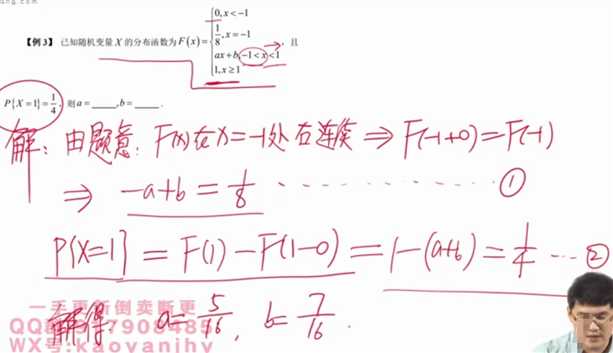 ang.com
【例3】已知随机变量 X 的分布函数为 F(x)= { 0, x < -1
1/8, x = -1
ax+b, -1 < x < 1
1, x ≥ 1 ,且
P{X=1}=1/4, 则 a = _____, b = _____.
解: 由题意: F(x)在x=-1处右连续 ⇒ F(-1+0)=F(-1)
⇒ -a+b = 1/8 ............ ①
P{X=1} = F(1)-F(1-0) = 1-(a+b) = 1/4 ... ②
解得 a=5/16, b=7/16.
一手更新倒卖断更
QQ
WX号:kaoyanjhy